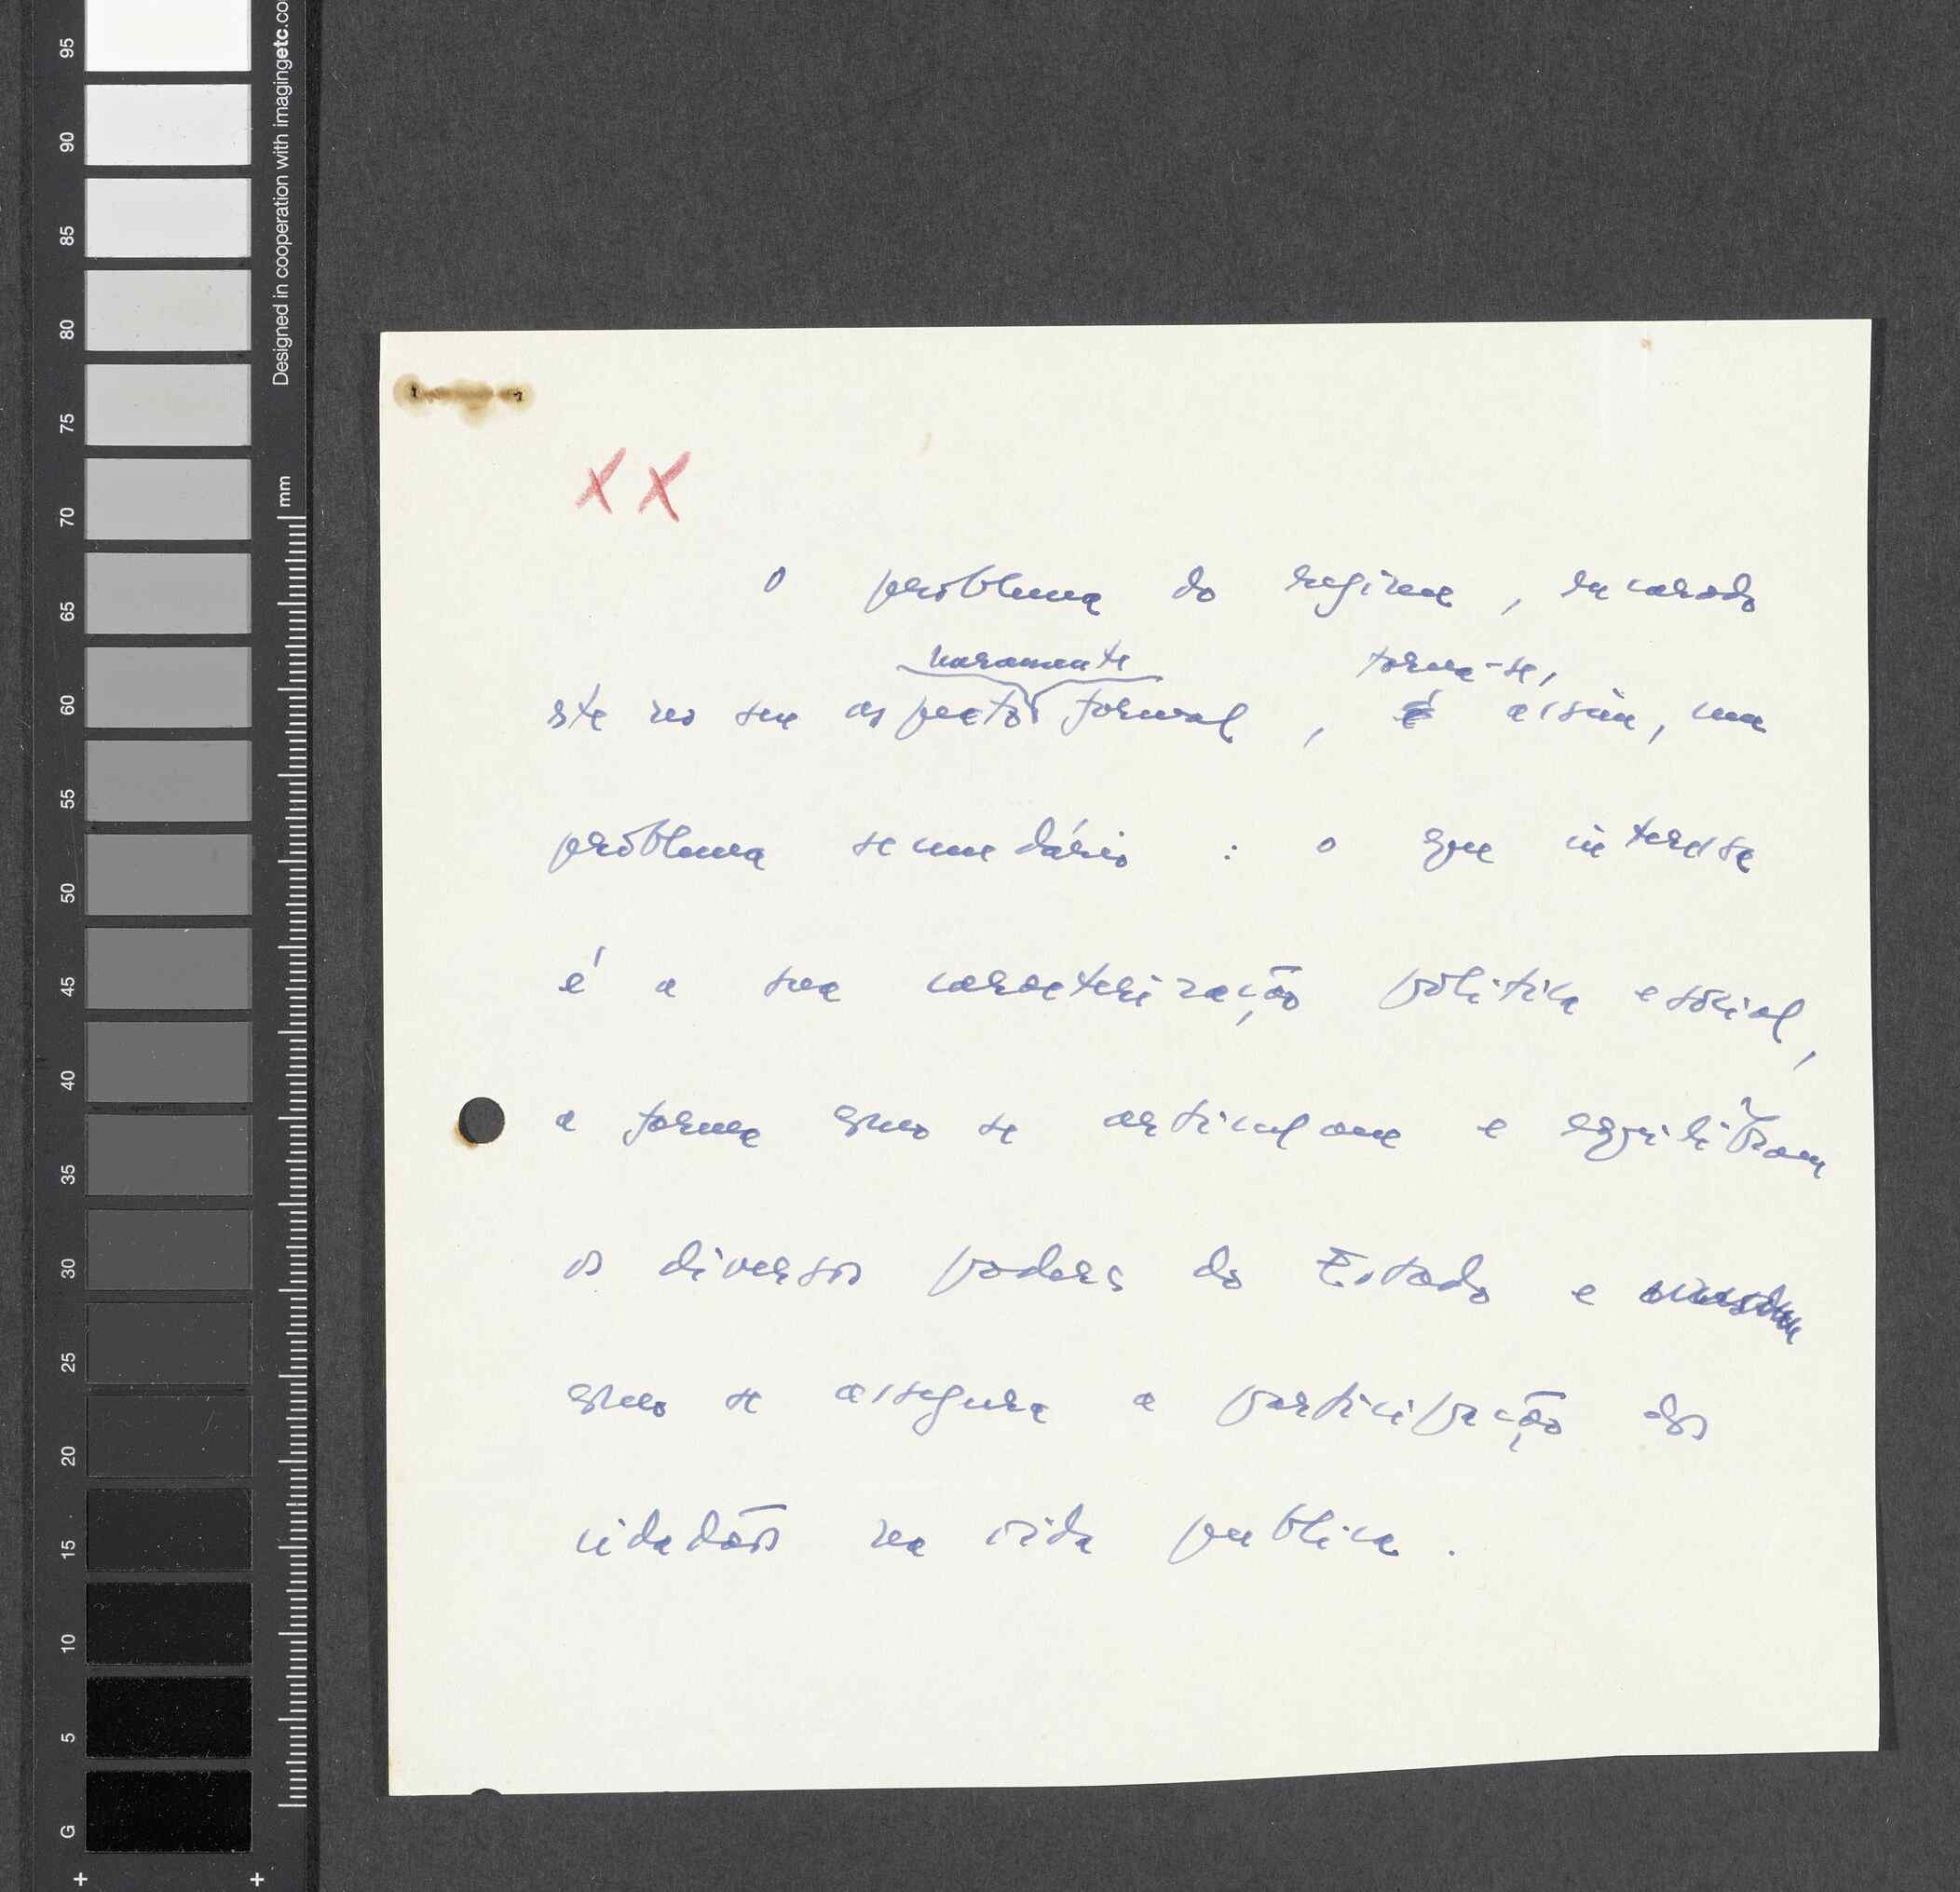 95
90
85
80
75
70
65
60
55
50
45
40
35
30
25
20
15
10
5
G
Designed in cooperation with imagingetc.co
mm
X X
O problema do regime, encarado
este no seu aspecto formal, é assim, um
meramente
torna-se,
problema secundário : o que interessa
é a sua caracterização politica e social,
a forma como se articulam e equilibram
os diversos poderes do Estado e
como se assegura a participação dos
cidadãos na vida publica.